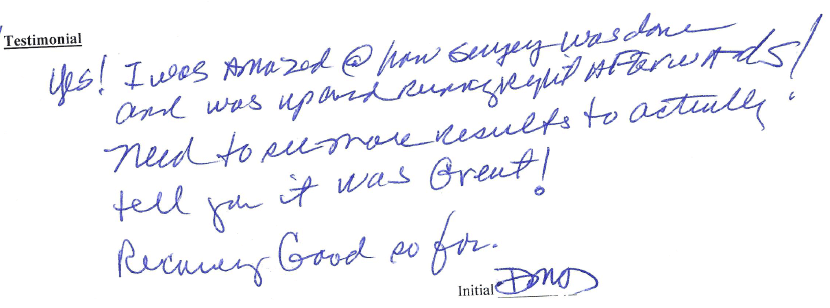 Testimonial
Yes! I was Amazed @ how surgery was done
and was up and Running Right Afterwards!
need to see more results to actually
tell you it was Great!
Recovery Good so far.
Initial